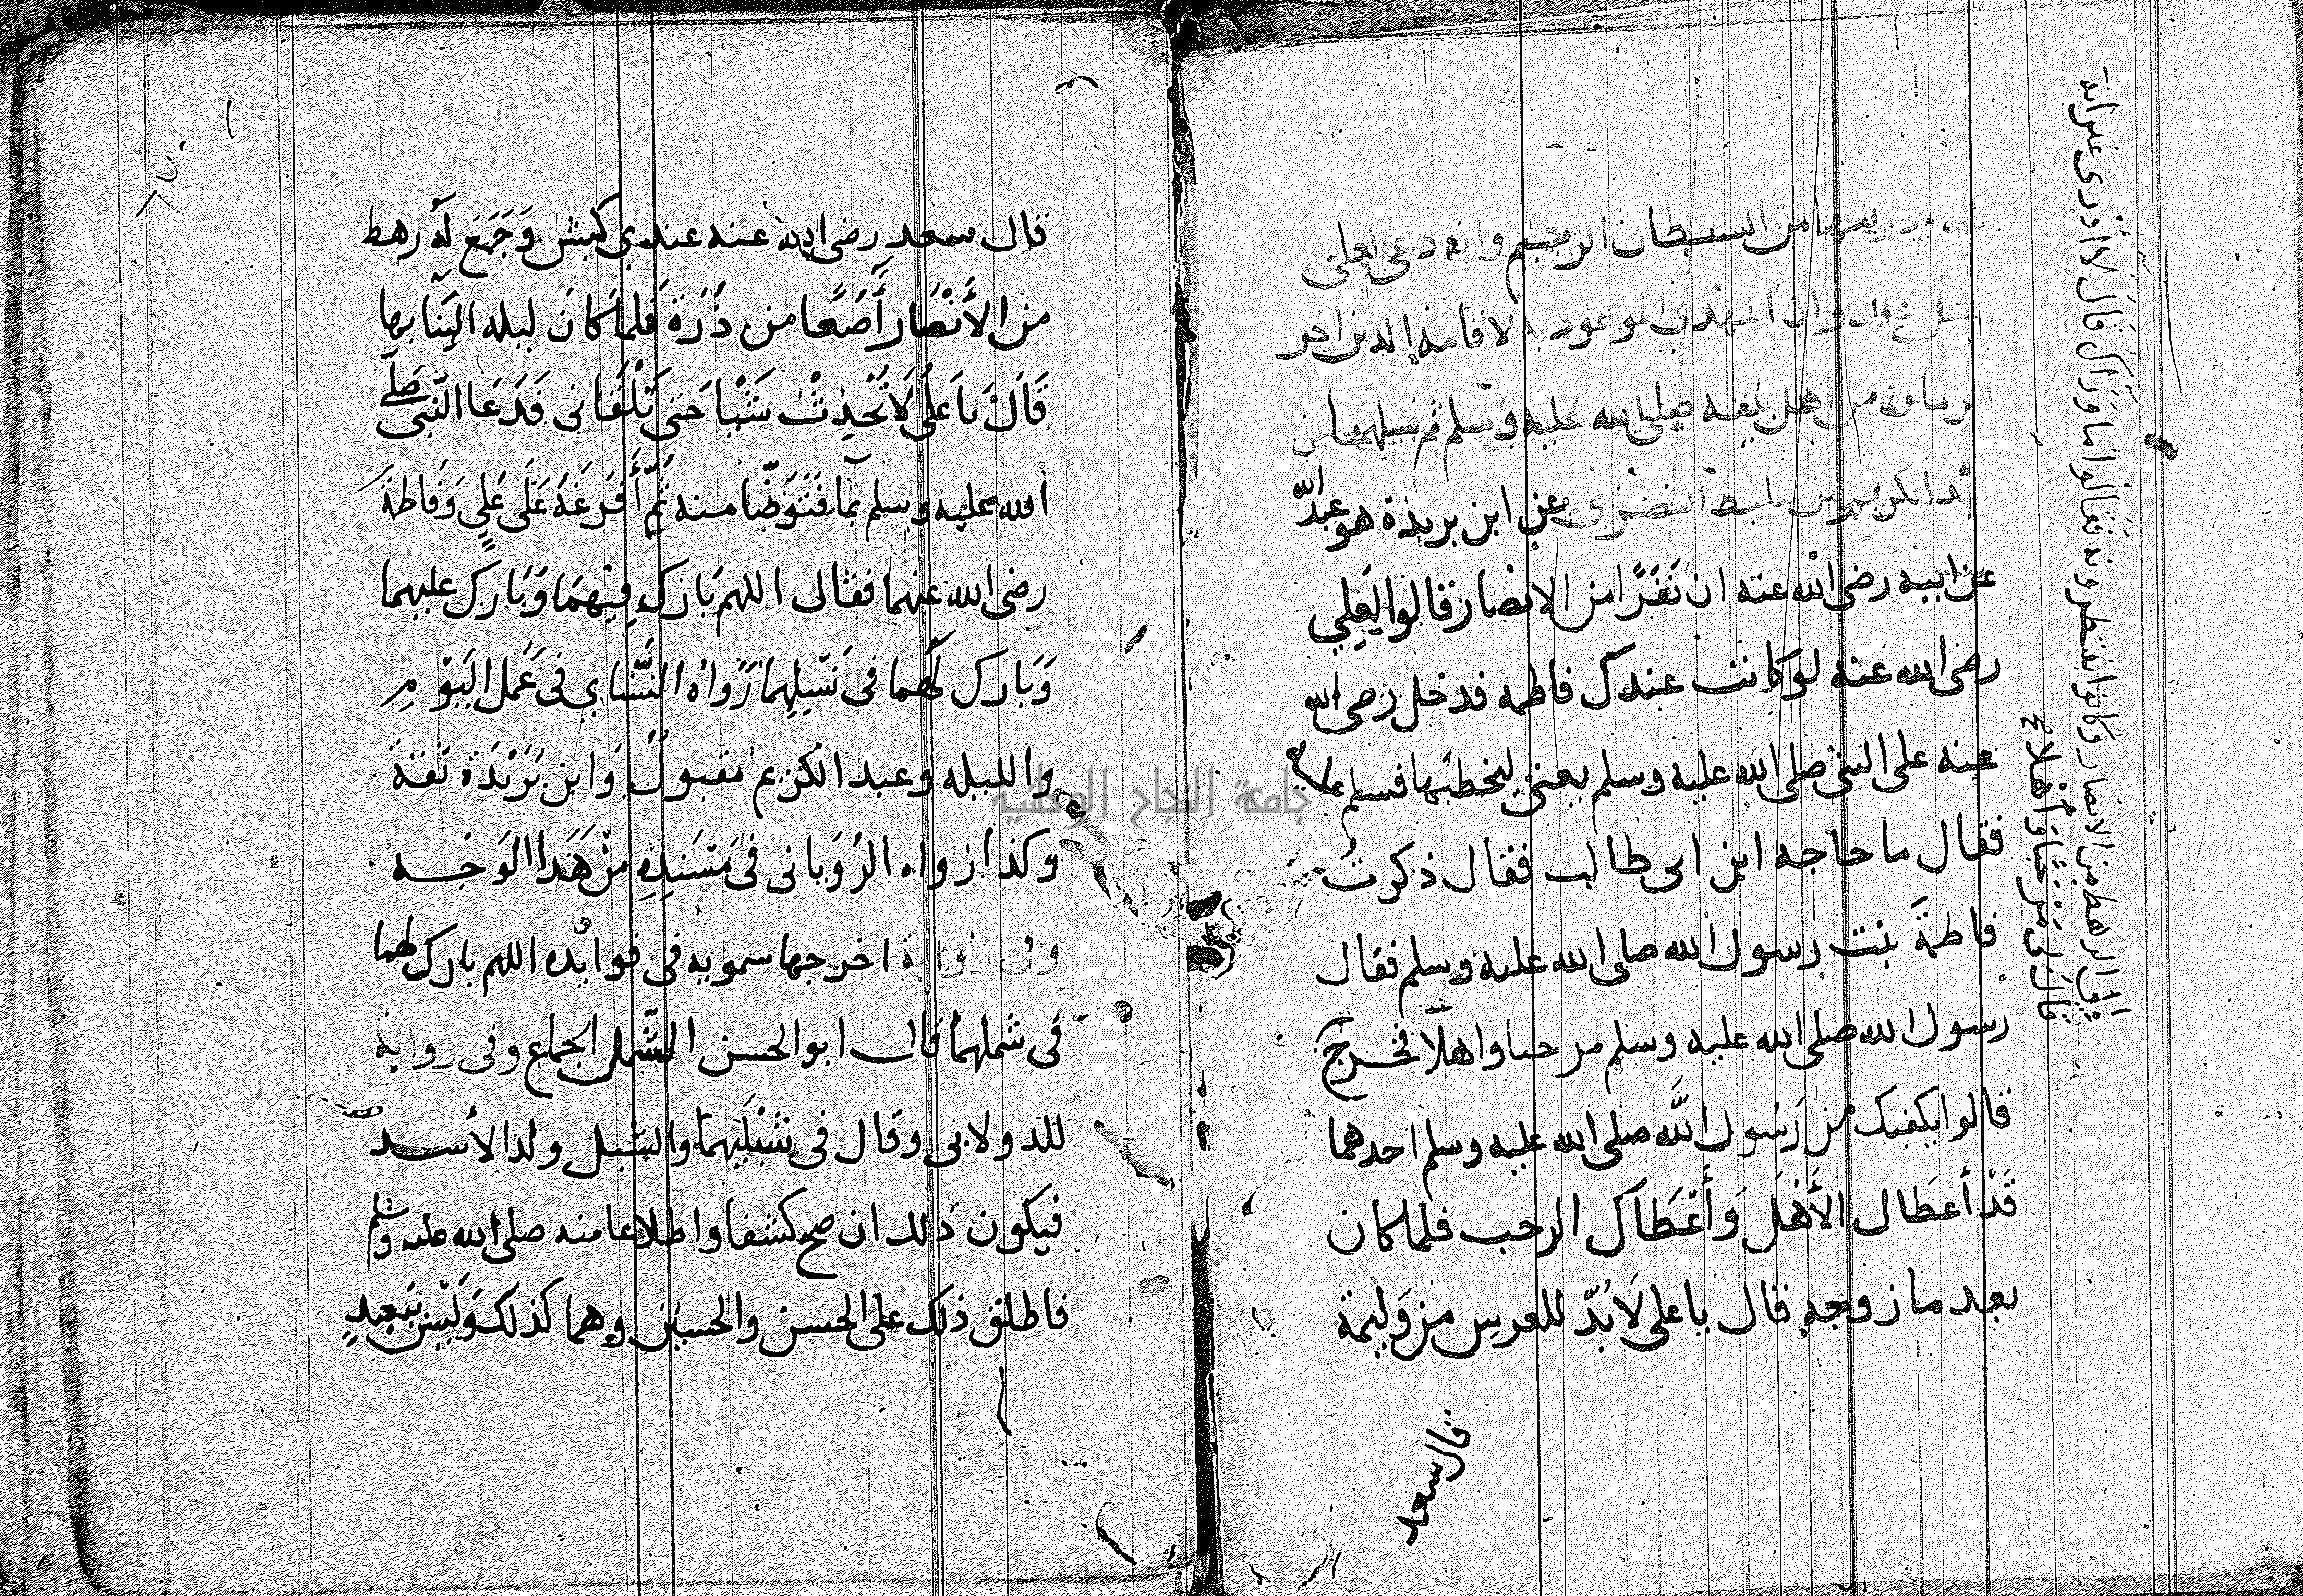 وذريتهما من الشيطان الرجيم وانه دعى لعلي
وان المهدي الموعود به لاقامة الدين اخر
من اهل بيته صلى الله عليه وسلم ثم نسلهما
عن ابن بريدة هو عبد الله
عن ابيه رضى الله عنه ان نَفَرًا من الانصار قالوا لِعَلِي
رضى الله عنه لو كانت عندك فاطمه فدخل رضى الله
عنه على النبي صلى الله عليه وسلم يعني ليخطبها فسلم عليه
فقال ما حاجه ابن ابى طالب فقال ذكرتُ
فاطمةَ بنت رسول الله صلى الله عليه وسلم فقال
رسول الله صلى الله عليه وسلم مرحبا واهلًا فخرج
الى الرهط من الانصار وكانوا ينتظرونه فقالوا ما وَرَاكَ قَالَ لَا أَدْرِى غير انه
قال لى مَرْحَبًا وَأَهْلًا صح
قالوا يكفيك من رَسُول اللَّه صلى الله عليه وسلم احدهما
قَدْ أَعْطَاك الأَهْلَ وَأَعْطَاكَ الرحب فلما كان
بعد ما زوجه قال يا على لَابُدّ للعرس من وَليمة
قال سعد
قال سعد رضى الله عنه عندي كبش وَجَمَعَ لَهُ رهط
من الأَنْصَار أَصُعًا من ذُرَة فَلما كَانَ ليله البِنَا بها
قَالَ يَا عَلِى لَا تُحْدِثْ شَيْئًا حَتى تَلْقَانى فَدَعَا النَّبى صَلى
الله عليه وسلم بمآ فَتَوَضَّا منه ثُمَّ أَفْرَغَهُ عَلَى عَلِي وَفَاطمَةَ
رضى الله عنهما فقال اللهم بَارِك فِيْهِمَا وَبَارِك عليهما
وَبَارِك لَهُما فى نَسْلِهِمَا رَوَاه النَّسَاي فى عَمَل اليَوْمِ
والليله وعبد الكريم مقبولٌ وَابن بُرَيْدَة ثقة
وكذا رواه الرُوْيانى فى مُسْنَدِهِ مِنْ هَذَا الوَجْه
وفى رواية اخرجها سمويه فى فوايده اللهم بارك لهما
فى شملهما قال ابو الحسن الشَّمل الجماع وفى رواية
للدولابى وقال فى شِبْلَيْهِمَا والشبل ولد الأسد
فيكون ذلك ان صح كشفا واطلاعا منه صلى الله عليه وسلم
فاطلق ذلك على الحسن والحسين وهما كذلك وَلَيْسَ بَبعيدٍ
جامعة النجاح الوطنية